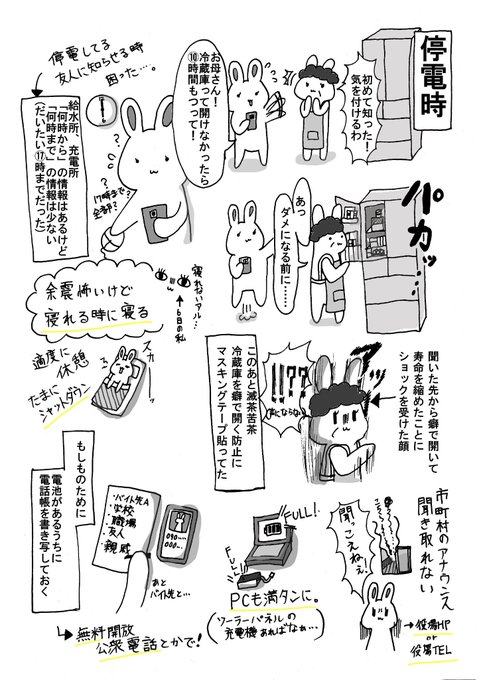 停電時
初めて知った!
気を付けるわ
お母さん!
冷蔵庫って開けなかったら
⑩時間もつって!
停電してる
友人に知らせる時
困った…。
!
給水所、充電所
「何時から」の情報はあるけど
「何時まで」の情報は少ない
(だいたい⑰時までだった)
17時まで?
全部?
パカッ…
あっ
ダメになる前に……
寝れないアル…
6日の私
余震怖いけど
寝れる時に寝る
スカー
適度に
休憩
たまに
シャットダウン
聞いた先から癖で開いて
寿命を縮めたことに
ショックを受けた顔
!!??
このあと滅茶苦茶
冷蔵庫を癖で開く防止に
マスキングテープ貼ってた
市町村のアナウンス
聞き取れない
聞っこえねぇ!
役場HP
or
役場TEL
FULL!
FULL!
PCも満タンに。
(ソーラーパネルの
充電機あればなぁ…)
もしものために
電池があるうちに
電話帳を書き写しておく
・バイト先A
・学校
・職場
・友人
・親戚
090-…
000-…
あと
バイト先と…
無料開放
公衆電話とかで!